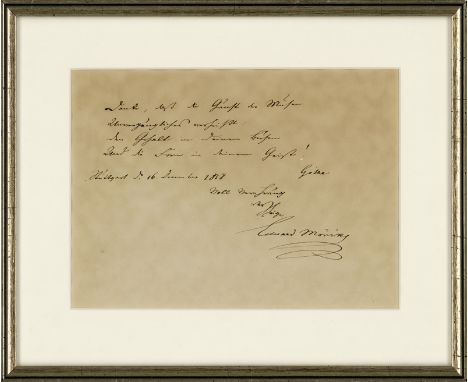 Danke, daß die Gunst der Musen
Unvergängliches verheißt:
Den Gehalt in deinem Busen
Und die Form in deinem Geist!
Göthe
Stuttgart d. 16. December 18
Voll Verehrung
der Ihrige
Eduard Mörike